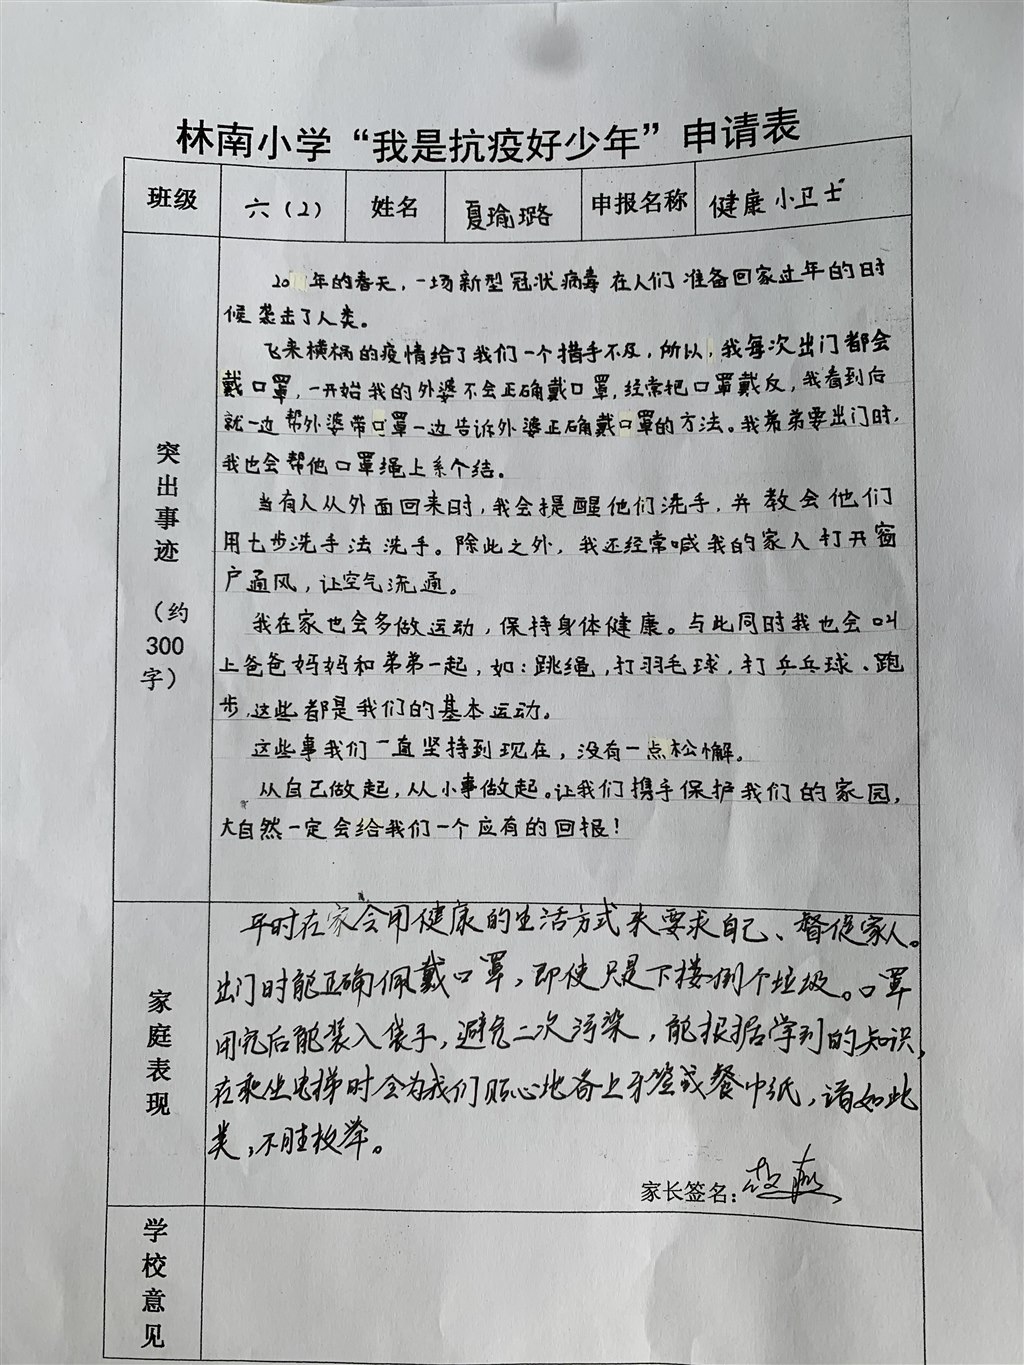 林南小学“我是抗疫好少年”申请表
班级 六（2） 姓名 夏瑜璐 申报名称 健康小卫士
突出事迹（约300字）
20 年的春天，一场新型冠状病毒在人们准备回家过年的时
候袭击了人类。
飞来横祸的疫情给了我们一个措手不及，所以，我每次出门都会
戴口罩，一开始我的外婆不会正确戴口罩，经常把口罩戴反，我看到后
就一边帮外婆带口罩一边告诉外婆正确戴口罩的方法。我弟弟要出门时，
我也会帮他口罩绳上系个结。
当有人从外面回来时，我会提醒他们洗手，并教会他们
用七步洗手法洗手。除此之外，我还经常喊我的家人打开窗
户通风，让空气流通。
我在家也会多做运动，保持身体健康。与此同时我也会叫
上爸爸妈妈和弟弟一起，如：跳绳，打羽毛球，打乒乓球、跑
步，这些都是我们的基本运动。
这些事我们一直坚持到现在，没有一点松懈。
从自己做起，从小事做起。让我们携手保护我们的家园，
大自然一定会给我们一个应有的回报！
家庭表现
平时在家会用健康的生活方式来要求自己、督促家人。
出门时能正确佩戴口罩，即使只是下楼倒个垃圾。口罩
用完后能装入袋子，避免二次污染，能根据学到的知识，
在乘坐电梯时会为我们贴心地备上牙签或餐巾纸，诸如此
类，不胜枚举。
家长签名：
学校意见